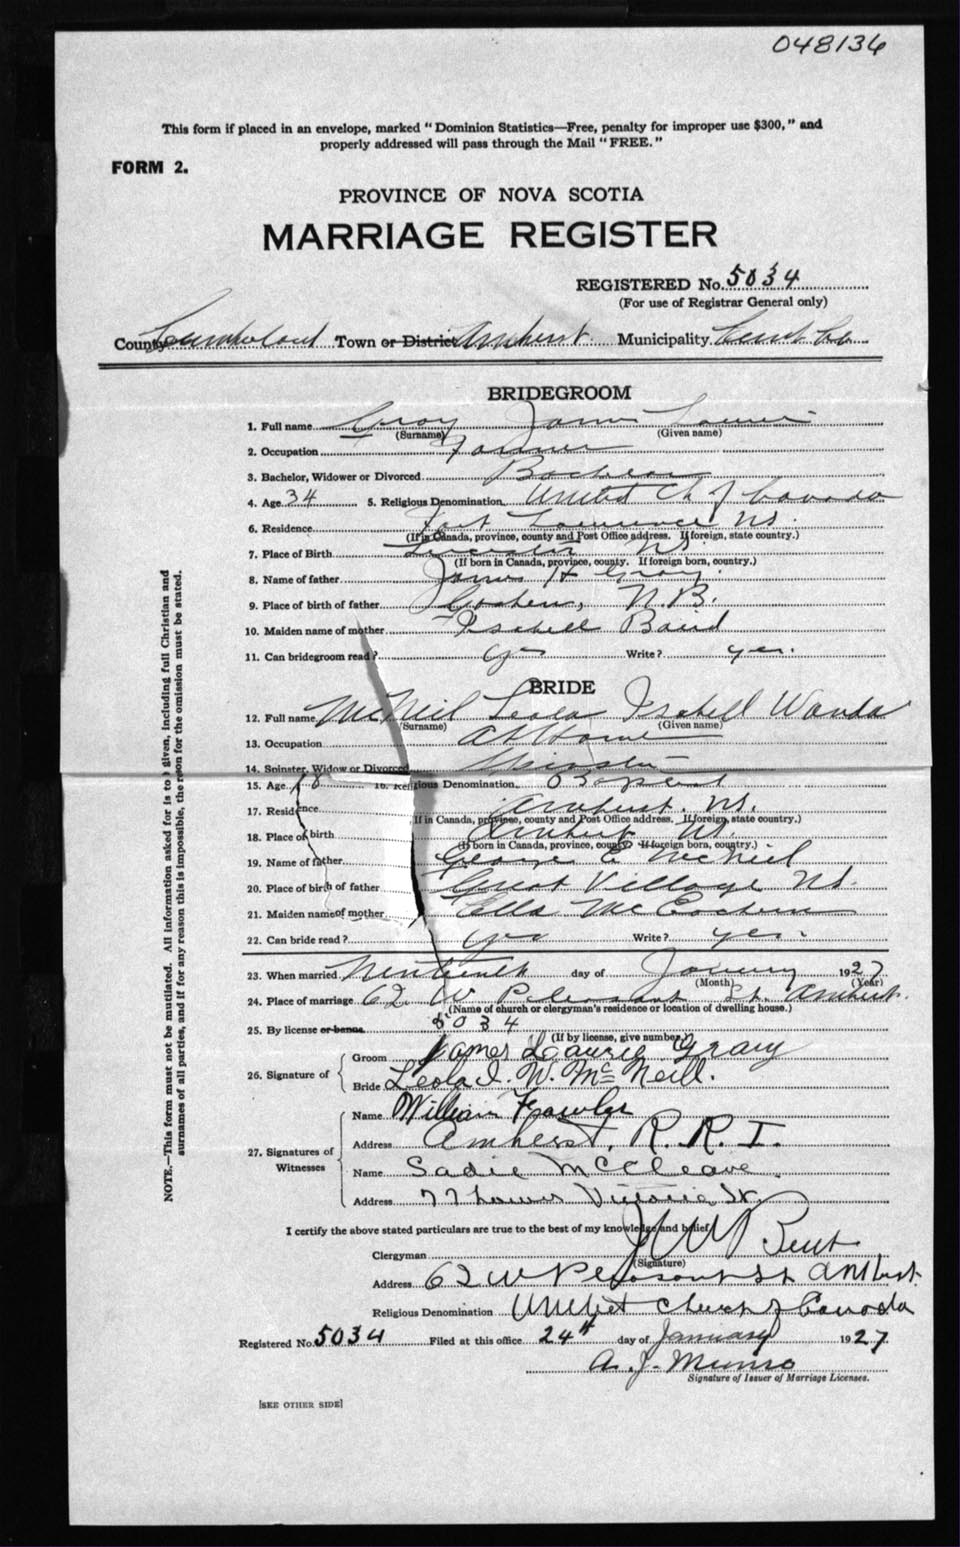 048136
This form if placed in an envelope, marked "Dominion Statistics—Free, penalty for improper use $300," and
properly addressed will pass through the Mail "FREE."
FORM 2.
PROVINCE OF NOVA SCOTIA
MARRIAGE REGISTER
REGISTERED No. 5034
(For use of Registrar General only)
County Cumberland Town or District Amherst Municipality
BRIDEGROOM
1. Full name Gray James
(Surname) (Given name)
2. Occupation Farmer
3. Bachelor, Widower or Divorced Bachelor
4. Age 34 5. Religious Denomination United Ch of Canada
6. Residence Fort Lawrence NS.
(If in Canada, province, county and Post Office address. If foreign, state country.)
7. Place of Birth Leicester NS.
(If born in Canada, province, county. If foreign born, country.)
8. Name of father James H Gray.
9. Place of birth of father N.B.
10. Maiden name of mother Isabell Baird
11. Can bridegroom read? yes Write? yes.
BRIDE
12. Full name McNeil Leola Isabell Wanda
(Surname) (Given name)
13. Occupation At Home
14. Spinster, Widow or Divorced Spinster
15. Age 18 16. Religious Denomination Baptist
17. Residence Amherst. NS.
If in Canada, province, county and Post Office address. If foreign, state country.)
18. Place of birth Amherst NS.
(If born in Canada, province, county. If foreign born, country.)
19. Name of father George E McNeil
20. Place of birth of father Great Village NS.
21. Maiden name of mother Ella
22. Can bride read? yes Write? yes.
23. When married Nineteenth day of January 1927
(Month) (Year)
24. Place of marriage 62 W Pleasant St. Amherst.
(Name of church or clergyman's residence or location of dwelling house.)
25. By license or banns 5034
(If by license, give number.)
26. Signature of
Groom James Laurie Gray
Bride Leola I. W. McNeill.
27. Signatures of Witnesses
Name William Fowler
Address Amherst, R. R. 1.
Name Sadie McCleave.
Address 77 Victoria St.
I certify the above stated particulars are true to the best of my knowledge and belief
Clergyman
(Signature)
Address 62 W Pleasant St Amherst.
Religious Denomination United Church of Canada
Registered No. 5034 Filed at this office 24th day of January 1927
A. J. Munro
Signature of Issuer of Marriage Licenses.
[SEE OTHER SIDE]
NOTE.—This form must not be mutilated. All information asked for is to be given, including full Christian and
surnames of all parties, and if for any reason this is impossible, the reason for the omission must be stated.